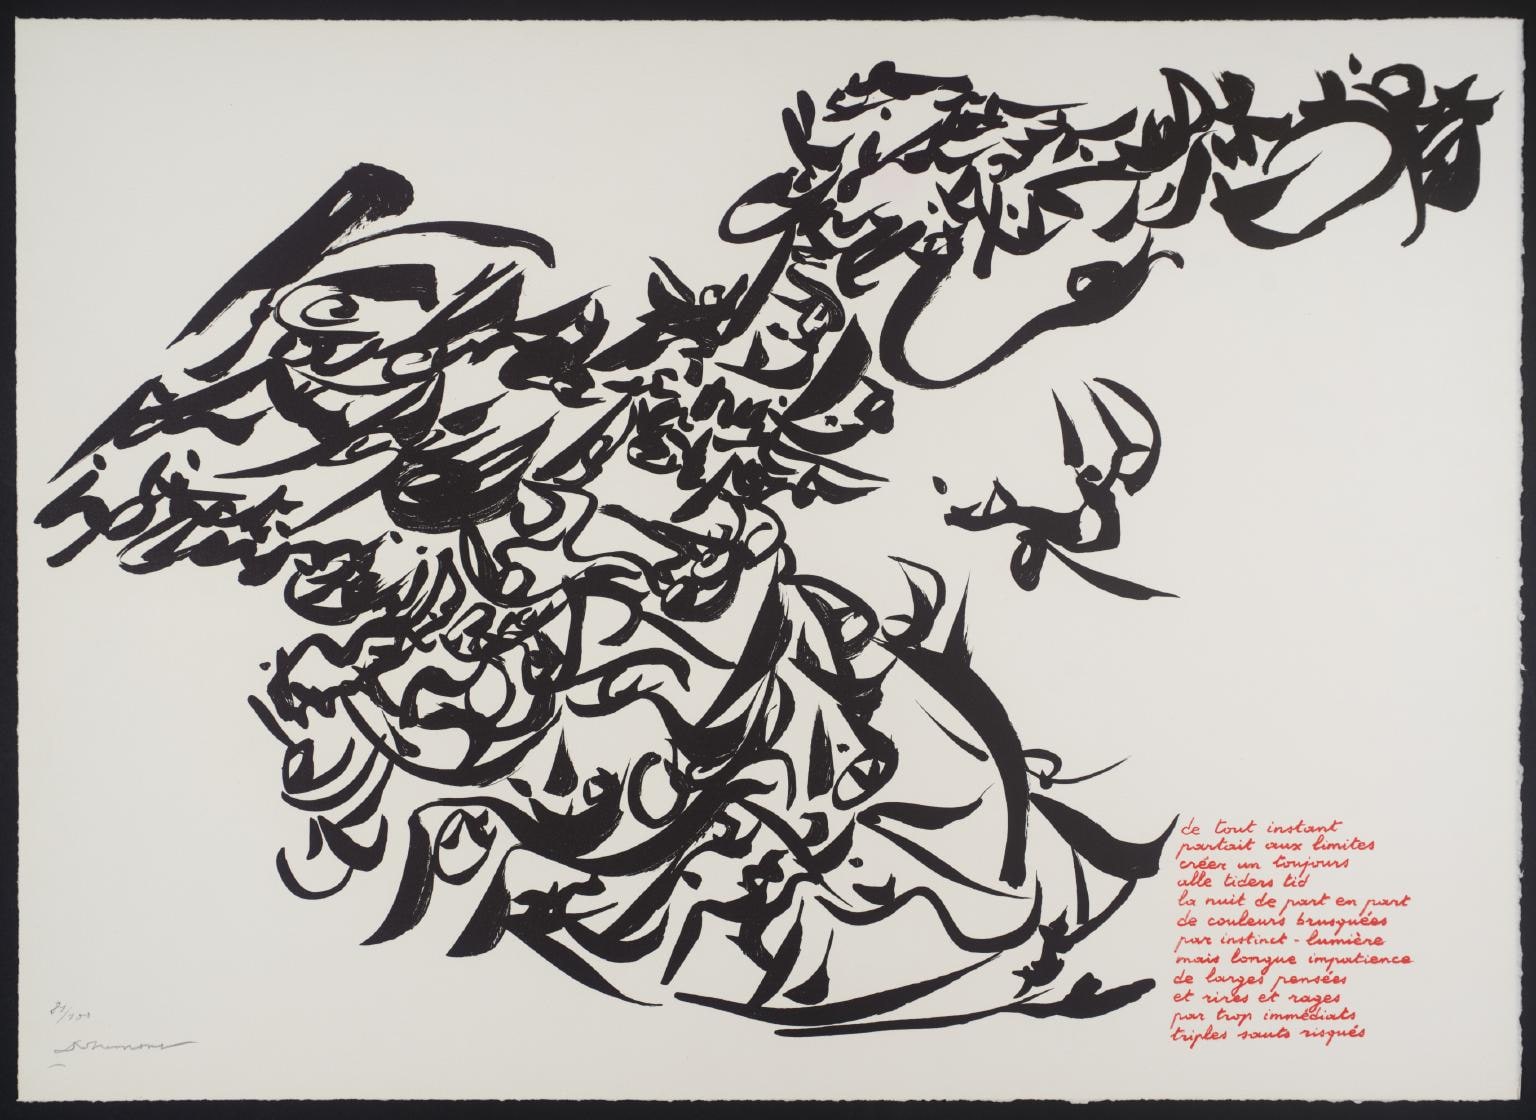 de tout instant
partait aux limites
créer un toujours
alle tiders tid
la nuit de part en part
de couleurs brusquées
par instinct - lumière
mais longue impatience
de larges pensées
et rires et rages
par trop immédiats
triples sauts risqués
/100